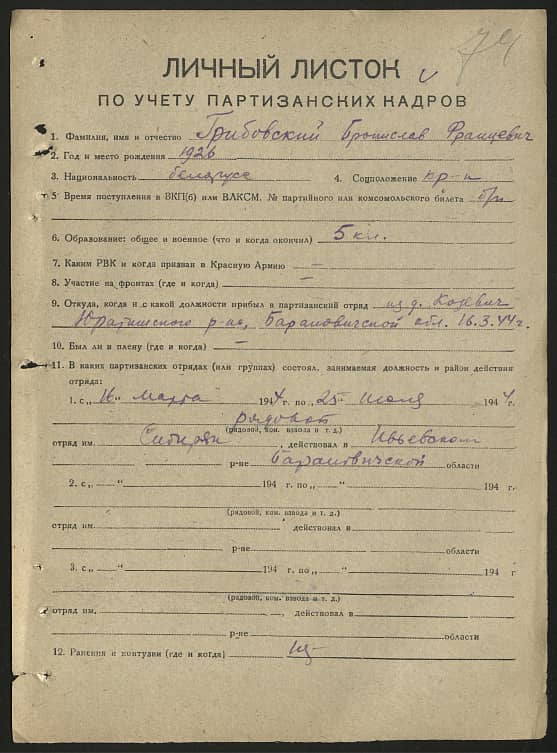 74
ЛИЧНЫЙ ЛИСТОК
ПО УЧЕТУ ПАРТИЗАНСКИХ КАДРОВ
1. Фамилия, имя и отчество Грибовский Бронислав Францевич
2. Год и место рождения 1926
3. Национальность беларусс 4. Соцположение кр-н
5 Время поступления в ВКП(б) или ВЛКСМ, № партийного или комсомольского билета б/п
6. Образование: общее и военное (что и когда окончил) 5 кл.
7. Каким РВК и когда призван в Красную Армию —
8. Участие на фронтах (где и когда) —
9. Откуда, когда и с какой должности прибыл в партизанский отряд из д. Козевич
Юратишского р-на, Барановичской обл. 16.3.44г.
10. Был ли в плену (где и когда) —
11. В каких партизанских отрядах (или группах) состоял, занимаемая должность и район действия
отряда:
1. с „16“ марта 1944 г. по „25“ июля 1944 г.
рядовой
(рядовой, ком. взвода и т. д.)
отряд им. Сибиряк, действовал в Ивьевском
р-не Барановичской области
2. с „ “ 194 г. по „ “ 194 г.
(рядовой, ком. взвода и т. д.)
отряд им. действовал в
р-не области
3. с „ “ 194 г. по „ “ 194 г
(рядовой, ком. взвода и т. д.)
отряд им. , действовал в
р-не области
12. Ранения и контузии (где и когда)